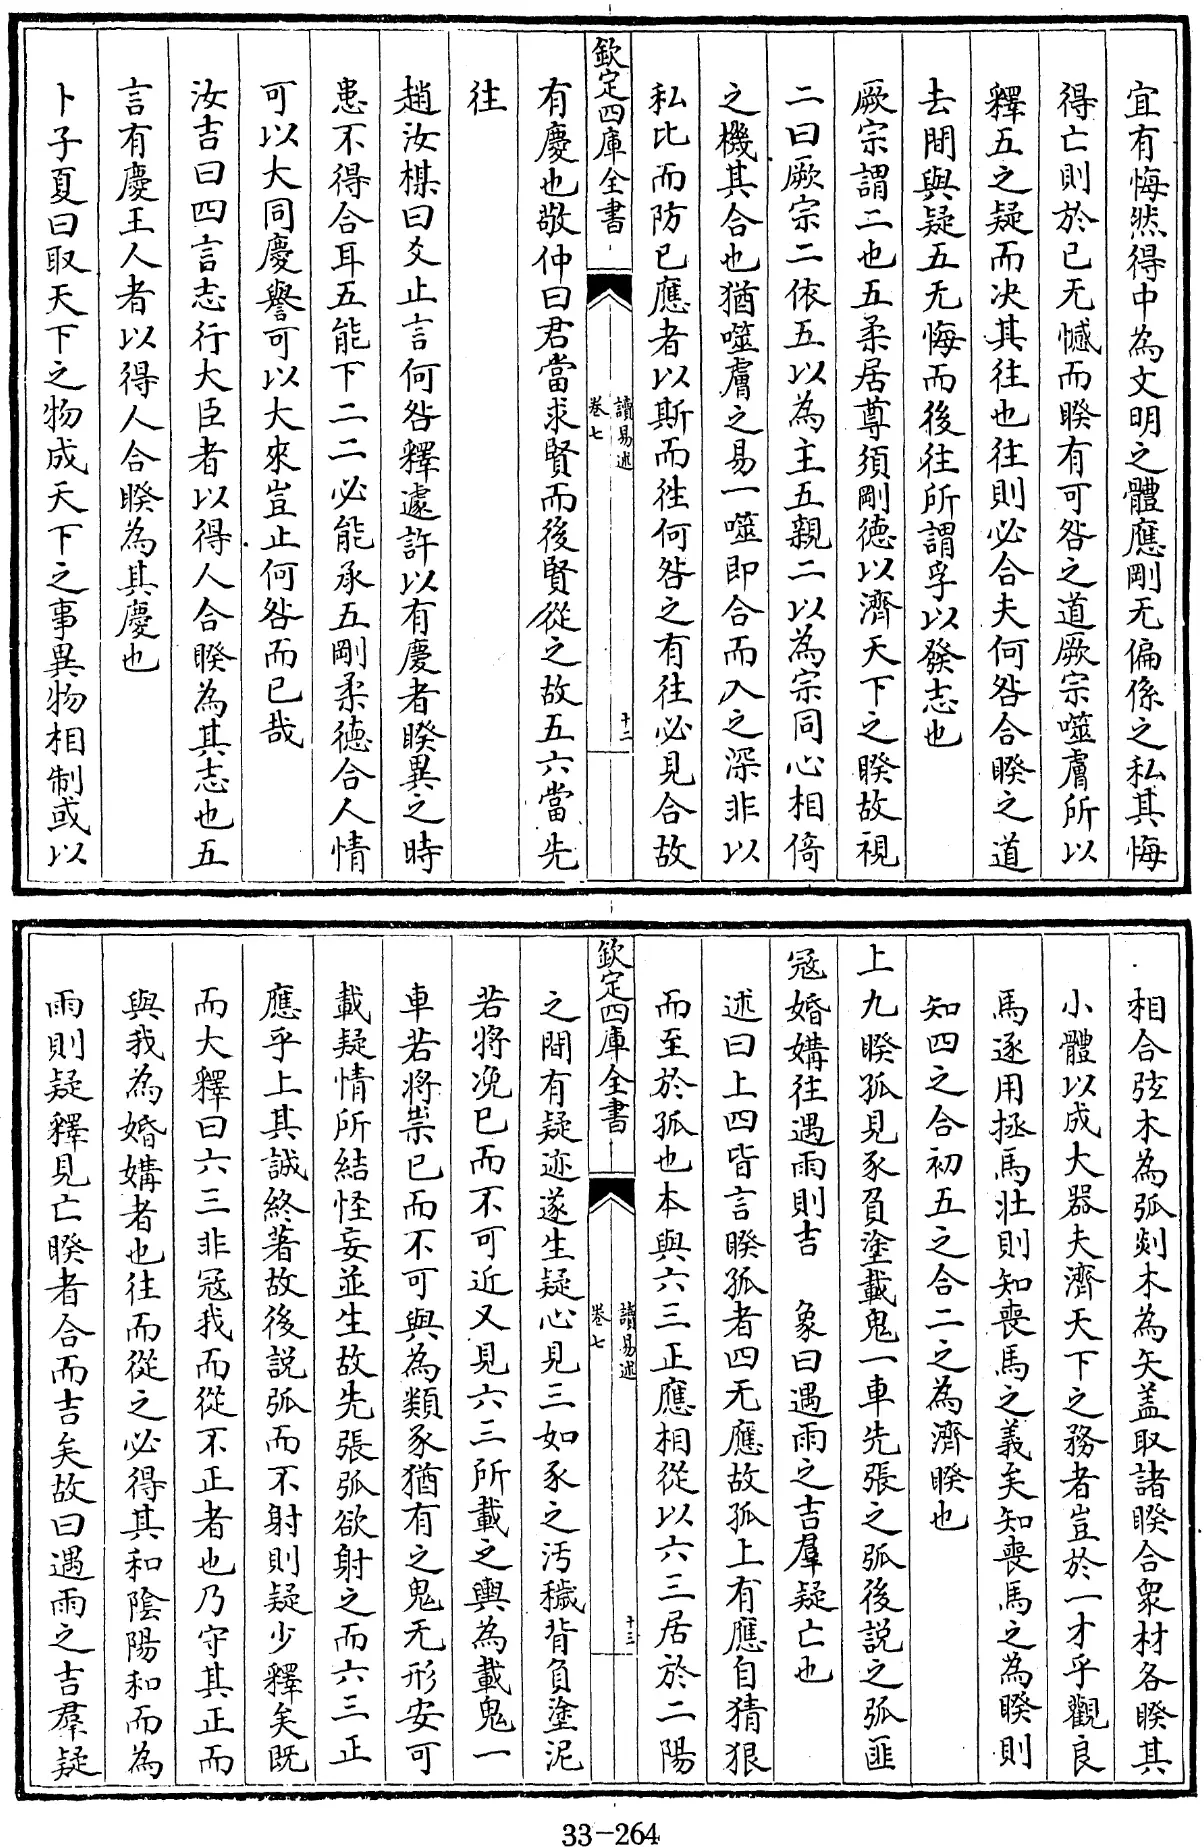 宜有悔然得中為文明之體應剛无偏係之私其悔
得亡則於已无憾而睽有可咎之道厥宗噬膚所以
釋五之疑而决其往也往則必合夫何咎合睽之道
去間與疑五无悔而後往所謂孚以發志也
厥宗謂二也五柔居尊須剛徳以濟天下之睽故視
二曰厥宗二依五以為主五親二以為宗同心相倚
之機其合也猶噬膚之易一噬即合而入之深非以
私比而防已應者以斯而徃何咎之有往必見合故
欽定四庫全書
讀易述
卷七
十二
有慶也敬仲曰君當求賢而後賢從之故五六當先
往
趙汝楳曰爻止言何咎釋遽許以有慶者睽異之時
患不得合耳五能下二二必能承五剛柔徳合人情
可以大同慶譽可以大來豈止何咎而已哉
汝吉曰四言志行大臣者以得人合睽為其志也五
言有慶王人者以得人合睽為其慶也
卜子夏曰取天下之物成天下之事異物相制或以
相合弦木為弧剡木為矢蓋取諸睽合衆材各睽其
小體以成大器夫濟天下之務者豈於一才乎觀良
馬逐用拯馬壯則知喪馬之義矣知喪馬之為睽則
知四之合初五之合二之為濟睽也
上九睽孤見豕負塗載鬼一車先張之弧後説之弧匪
冦婚媾往遇雨則吉　象曰遇雨之吉羣疑亡也
述曰上四皆言睽孤者四无應故孤上有應自猜狠
而至於孤也本與六三正應相從以六三居於二陽
欽定四庫全書
讀易述
卷七
十三
之間有疑迹遂生疑心見三如豕之汚穢背負塗泥
若將凂已而不可近又見六三所載之輿為載鬼一
車若將祟已而不可與為類豕猶有之鬼无形安可
載疑情所結怪妄並生故先張弧欲射之而六三正
應乎上其誠終著故後説弧而不射則疑少釋矣既
而大釋曰六三非冦我而從不正者也乃守其正而
與我為婚媾者也往而從之必得其和陰陽和而為
雨則疑釋見亡睽者合而吉矣故曰遇雨之吉羣疑
33-264